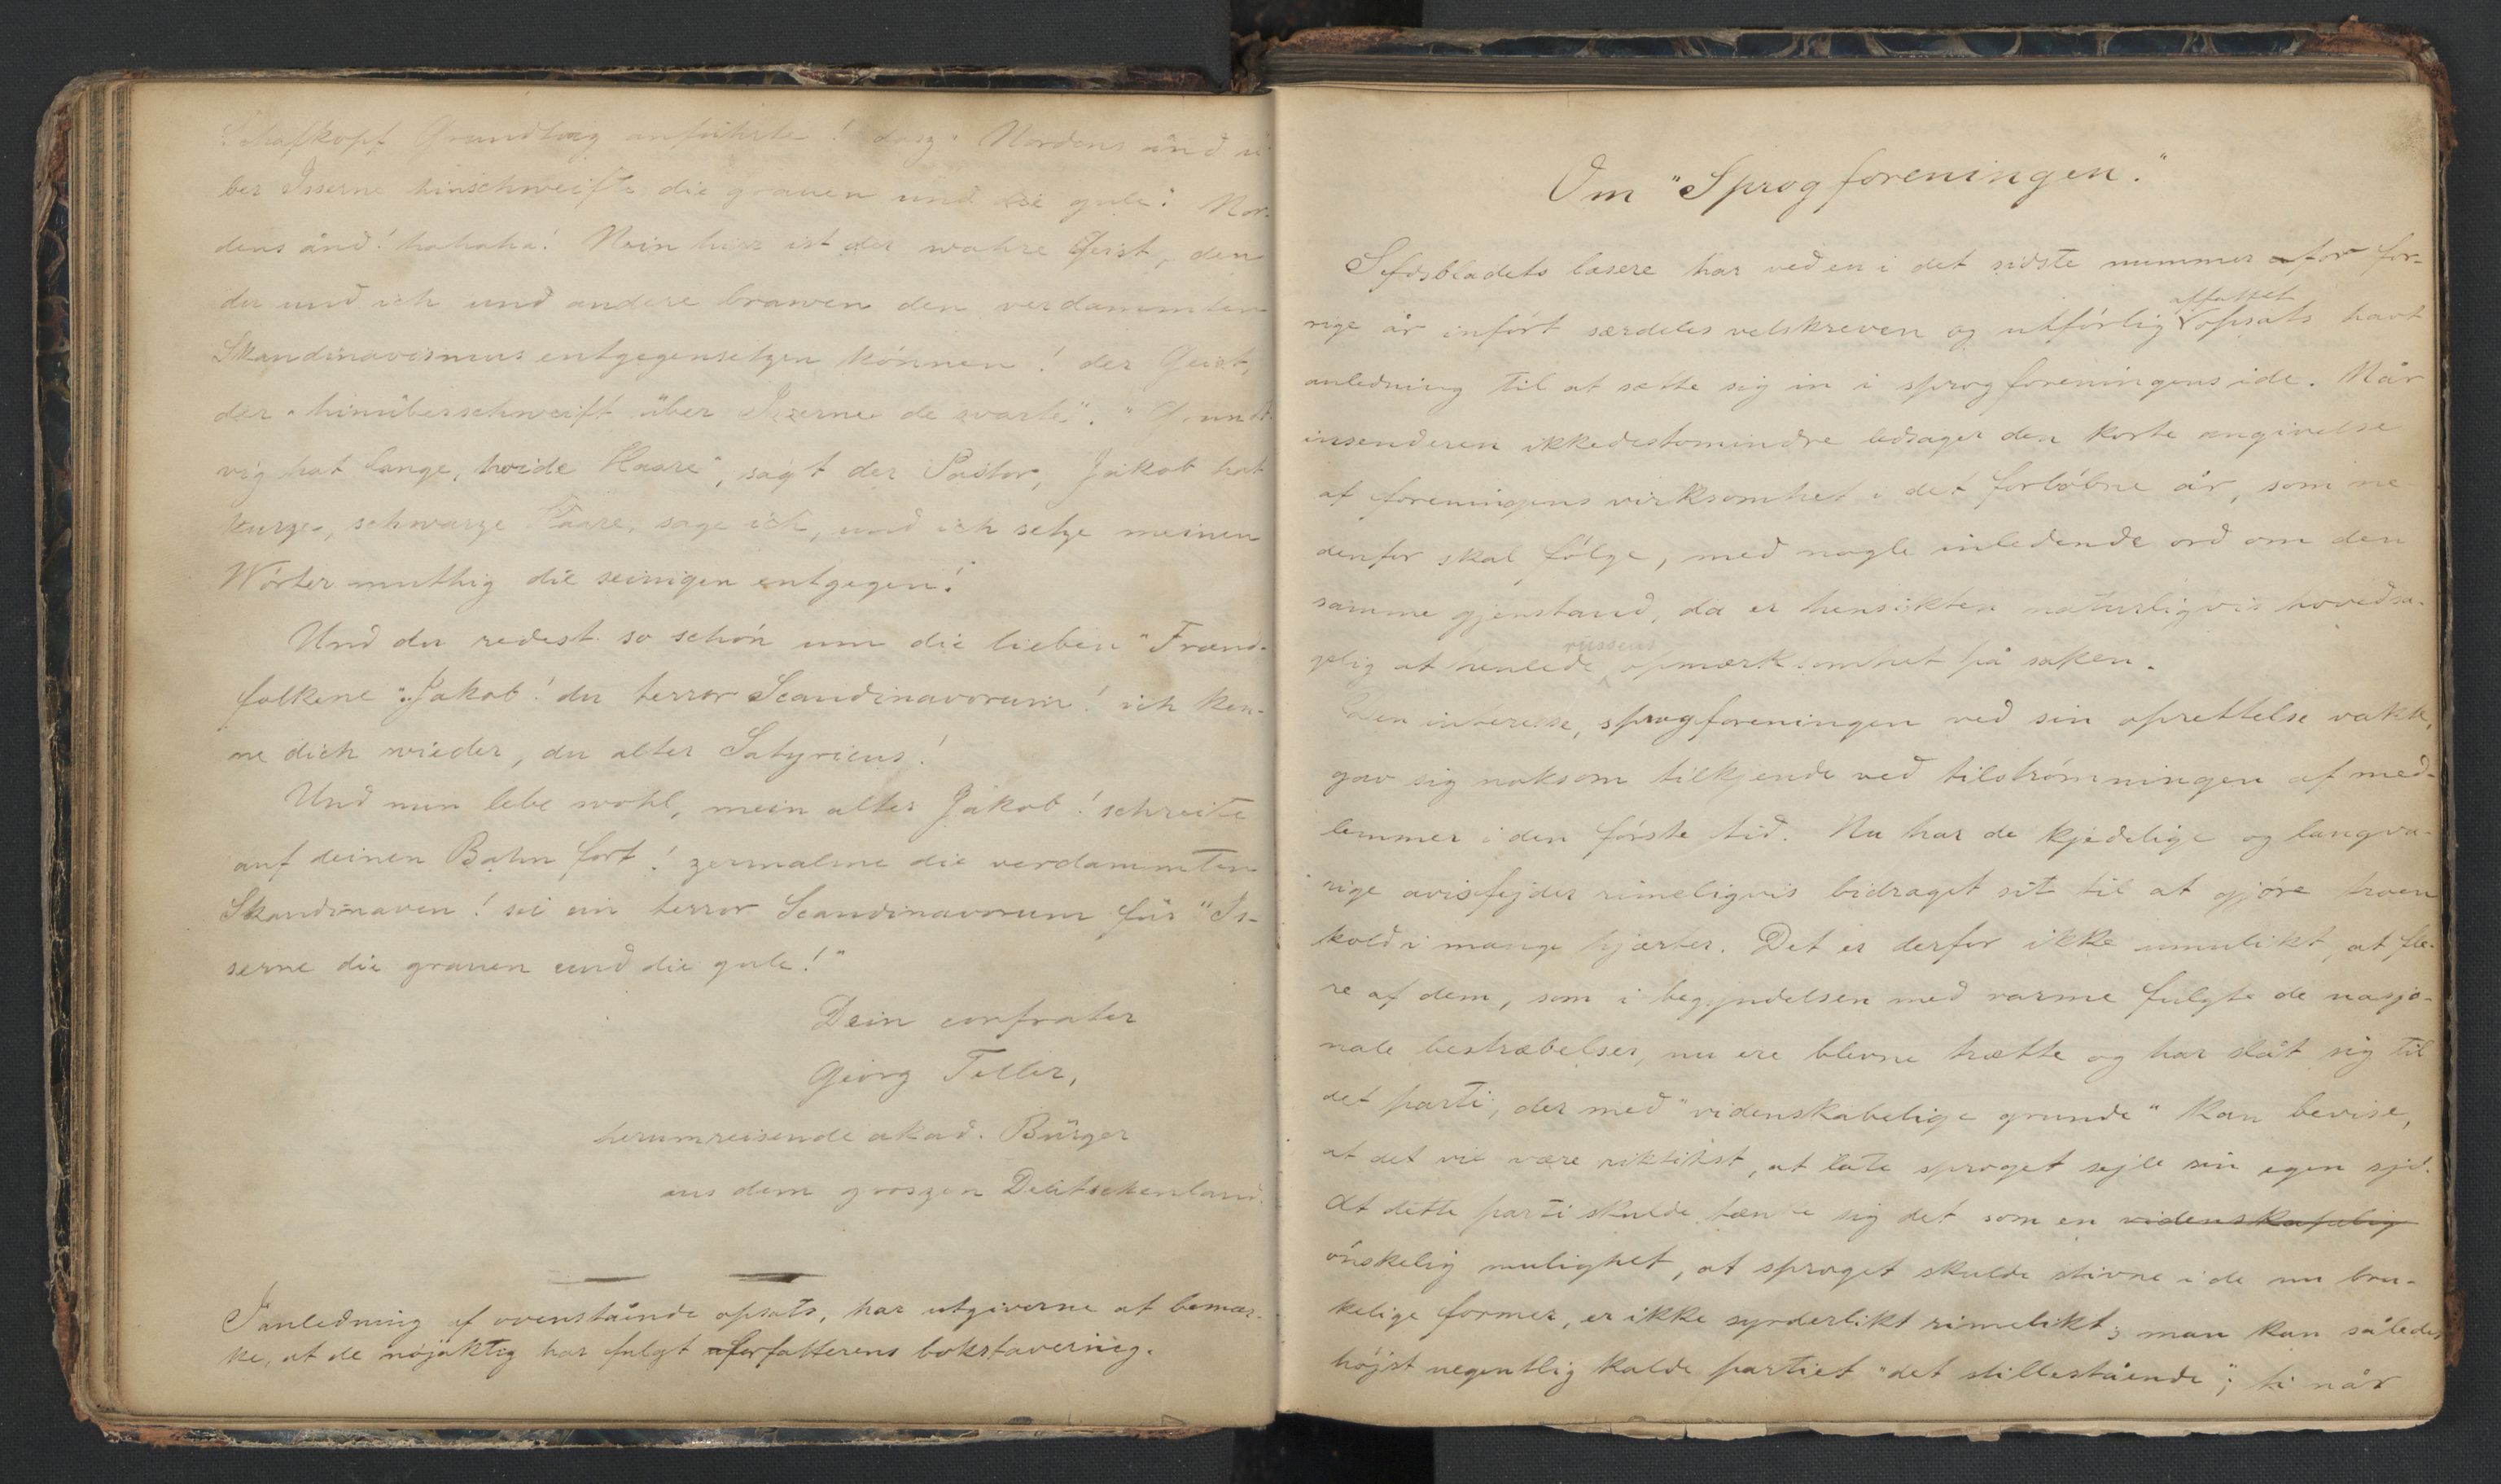 Schafkopf Grundtvig anführte! dasz "Nordens ånd ü
ber Isserne hinschweifte die grauen und die gule." Nor-
dens ånd! hahaha! Nein hier ist der wahre Geist, den
du und ich und andere brawen den verdammten
Skandinavismus entgegensetzen können! der Geist,
der "hinüberschweift über Isserne de svarte". "Grundt-
vig hat lange, hvide Haare", sagt der Pastor, Jakob hat
kurze, schwarze Haare, sage ich, und ich setze meinen
Wörter muthig die seinigen entgegen!
Und du redest so schön um die lieben "Frænd-
folkene". Jakob! du terror Scandinavorum! ich ken-
ne dich wieder, du alter Satyricus!
Und nun lebe wohl, mein alter Jakob! schreite
auf deinen Bahn fort! zermalme die verdammten
Skandinaven! sei ein terror Scandinavorum für "Is-
serne die grauen und die gule!"
Dein confrater
Georg Teller,
herumreisende akad. Bürger
aus dem groszen Deütschenland.
I anledning af ovenstående opsats, har utgiverne at bemær-
ke, at de nöjaktig har fulgt forfatterens bokstavering.
Om "Sprogforeningen."
Sefdsbladets læsere har ved en i det sidste nummer for for-
affattet
rige år infört særdeles velskreven og utförlig opsats havt
anledning til at sætte sig in i sprogforeningens ide. Når
insenderen ikkedestomindre ledsager den korte angivelse
af foreningens virksomhet i det forløbne år, som ne-
denfor skal fölge, med nogle inledende ord om den
samme gjenstand, da er hensikten naturligvis hovedsa-
russens
gelig at henlede opmærksomhet på saken.
Den interesse, sprogforeningen ved sin oprettelse vakte,
gav sig noksom tilkjende ved tilströmningen af med-
lemmer i den förste tid. Nu har de kjedelige og langva-
rige avisfejder rimeligvis bidraget sit til at gjöre troen
kold i mange hjærter. Det er derfor ikke umulikt, at fle-
re af dem, som i begyndelsen med varme fulgte de nasjo-
nale bestræbelser, nu ere blevne trætte og har slåt sig til
det parti, der med "videnskabelige grunde" kan bevise,
at det vil være riktikst, at late sproget sejle sin egen sjö.
At dette parti skulde tænke sig det som en videnskapelig
önskelig mulighet, at sproget skulde stivne i de nu bru-
kelige former, er ikke synderlikt rimelikt; man kan således
höjst uegentlig kalde partiet "det stillestående"; ti når